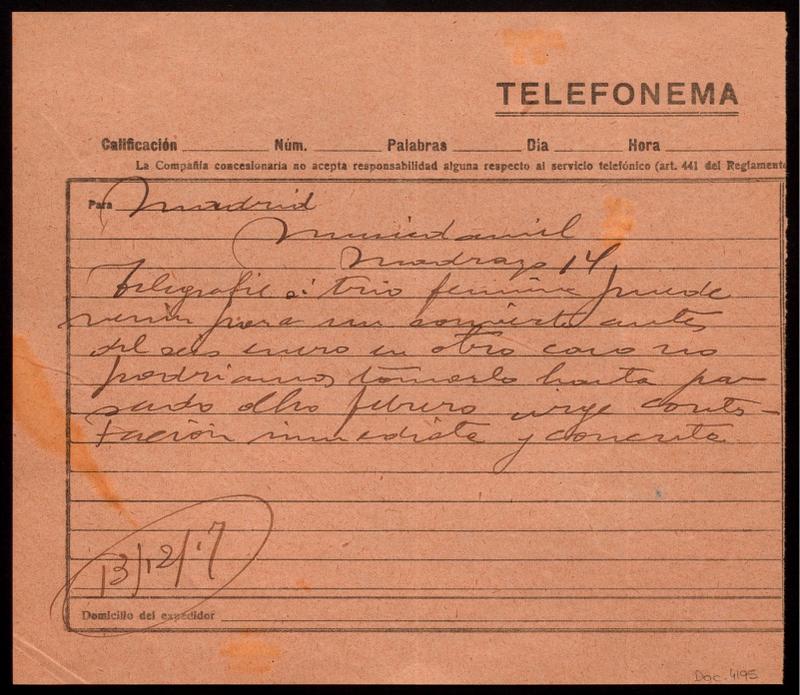 TELEFONEMA
Calificación Núm. Palabras Dia Hora
La Compañía concesionaria no acepta responsabilidad alguna respecto al servicio telefónico (art. 441 del Reglamento
Para Madrid
Musicdaniel
Madrazo 14
Telegrafie si trio femenino puede
venir para un concierto antes
del seis enero en otro caso no
podriamos tomarlo hasta pa-
sado ocho febrero urge contes-
tación inmediata y concreta
13/12/17
Domicilio del expedidor
Doc. 4195